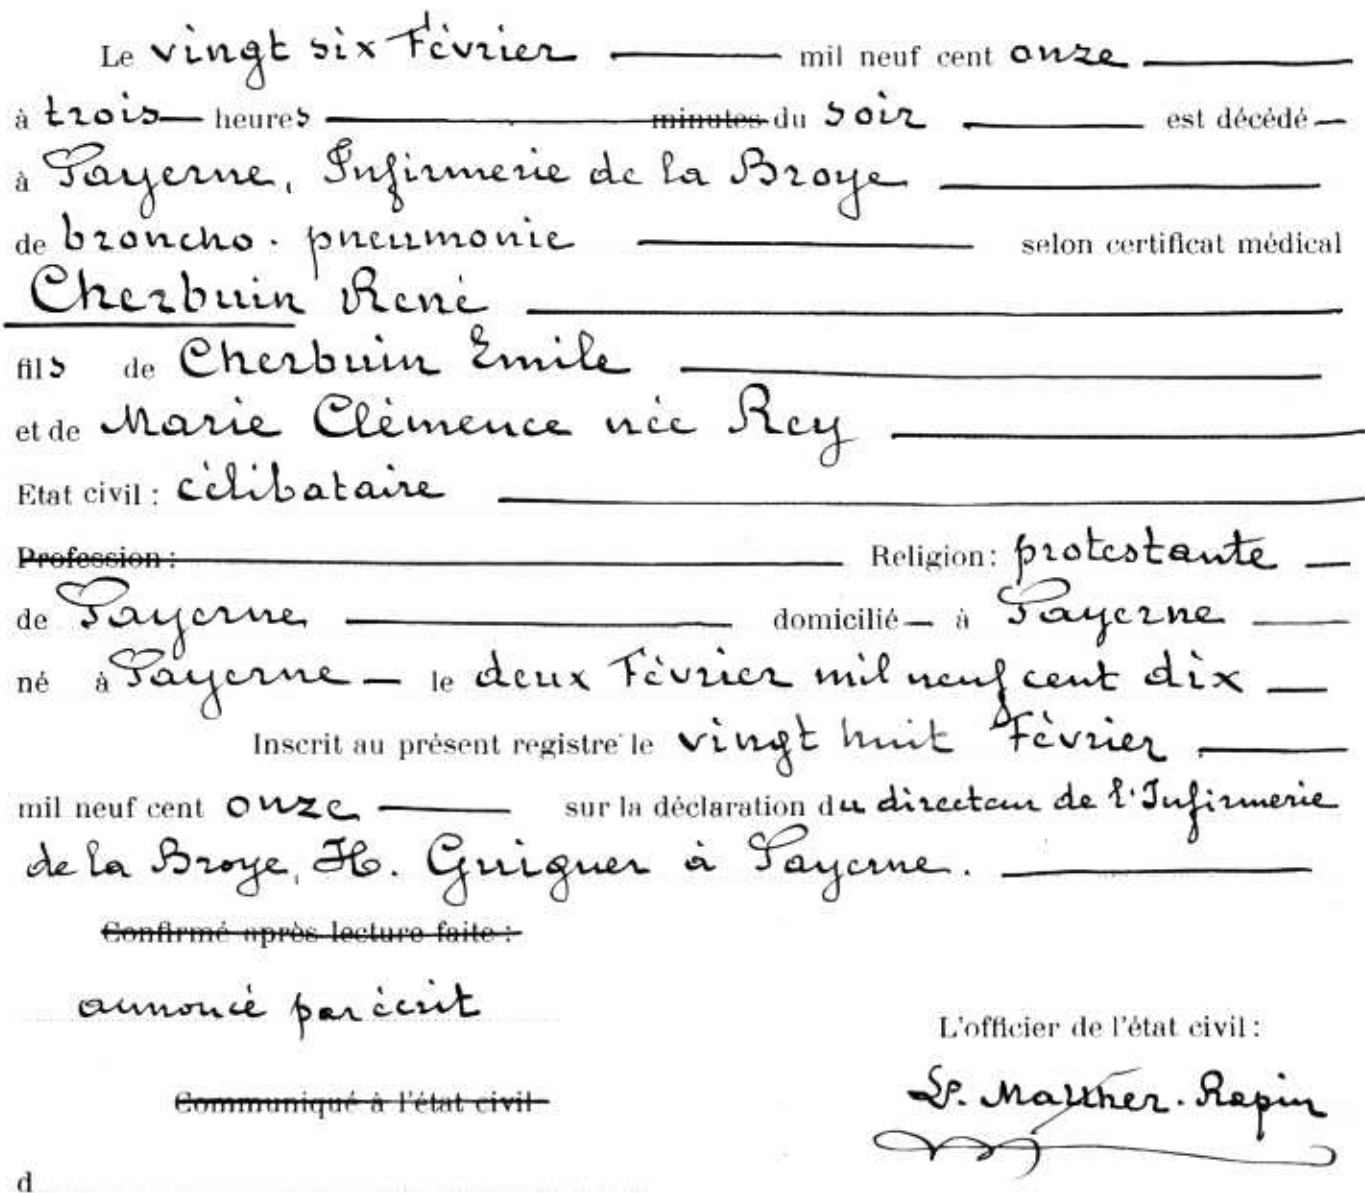 Le vingt six Février mil neuf cent onze
à trois heures minutes du soir est décédé
à Payerne, Infirmerie de la Broye
de broncho-pneumonie selon certificat médical
Cherbuin René
fils de Cherbuin Emile
et de Marie Clémence née Rey
Etat civil : célibataire
Profession : Religion : protestante
de Payerne domicilié à Payerne
né à Payerne le deux Février mil neuf cent dix
Inscrit au présent registre le vingt huit Février
mil neuf cent onze sur la déclaration du directeur de l'Infirmerie
de la Broye, H. Guiguer à Payerne.
Confirmé après lecture faite :
annoncé par écrit
L'officier de l'état civil :
Communiqué à l'état civil
Rapin
d